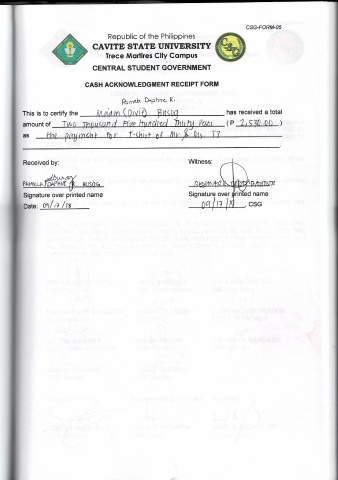 CSG-FORM-05
Republic of the Philippines
CAVITE STATE UNIVERSITY
Trece Martires City Campus
CENTRAL STUDENT GOVERNMENT
CASH ACKNOWLEDGMENT RECEIPT FORM
Daphne R.
This is to certify the Madam Busog has received a total
amount of Two Thousand Five Hundred Thirty Pesos (P 2,530.00)
as the payment for T-shirt of Mr & Ms
Received by: Witness:
DAPHNE R. BUSOG
Signature over printed name Signature over printed name
Date: 09/17/18 09/17/18, CSG